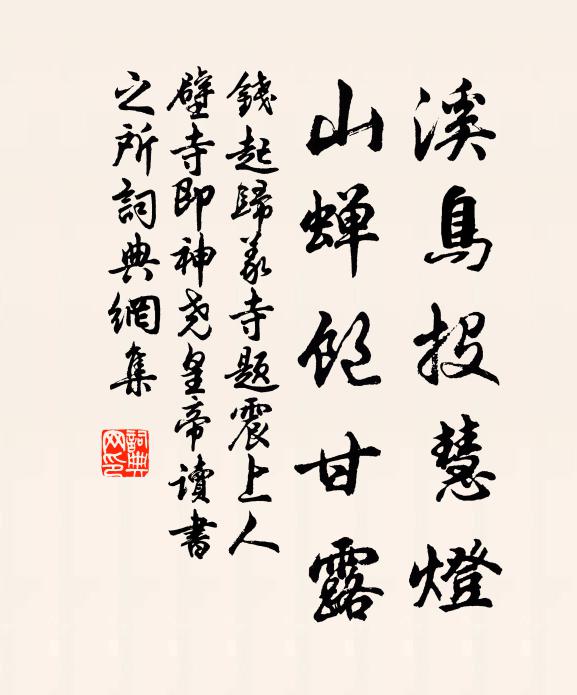 溪鳥投慧燈
山蝉飽甘露
錢起歸義寺題震上人
壁寺即神堯皇帝讀書
之所詞典網集
詞典網印